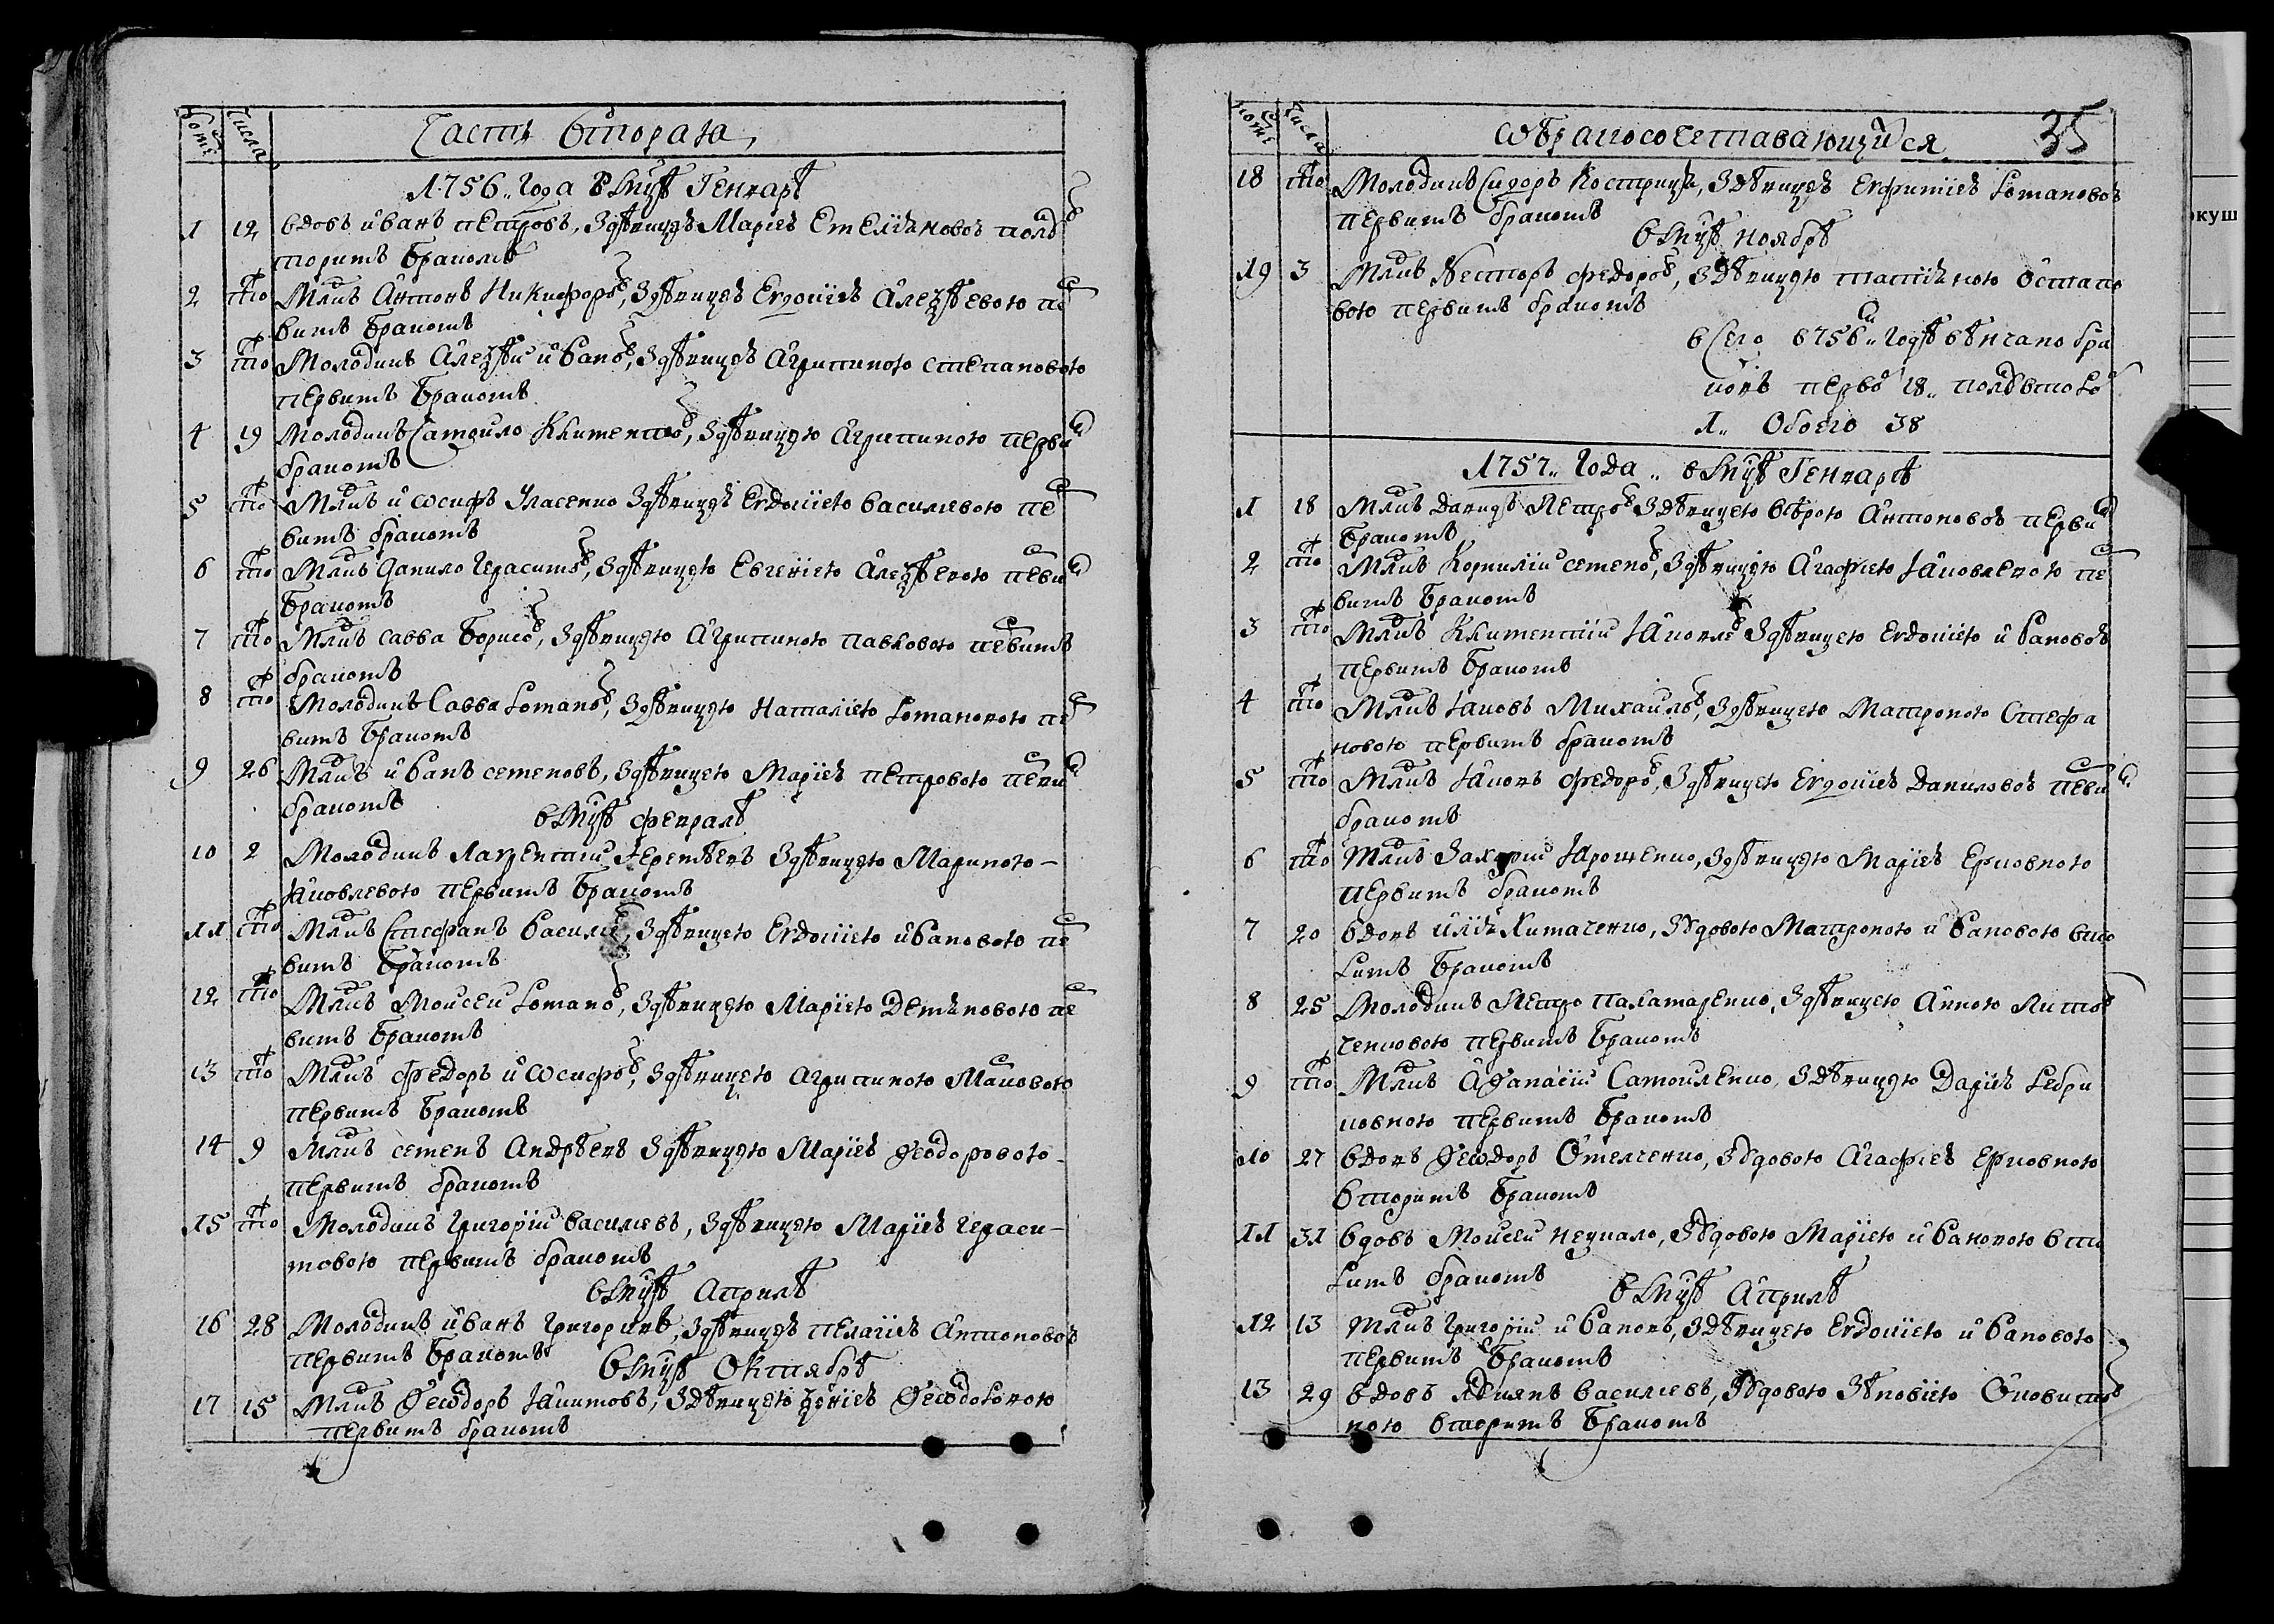 Часть вторая
1756 Года в мцѣ Генварѣ
1 12 вдовъ иванъ петровъ, здѣвицеѣ Маріеѣ Емеліяновоѣ полв
торимъ бракомъ
2 тго Млкъ Антонъ Никифоров, здѣвицеѣ Евдокіеѣ Алеѯѣевою пе
вимъ бракомъ
3 тго Молодикъ Алеѯѣй иванов, здѣвицеѣ Агрипиною степановою
первимъ бракомъ
4 19 Молодикъ Самойло Климентов, здѣвицею Агрипиною перви
бракомъ
5 тго Млдкъ иѡсифъ Уласенко здѣвицеѣ Евдокіею василиевою пе
вимъ бракомъ
6 тго Млдкъ данило герасимов, здѣвицею Евгеніею Алеѯѣевою певи
бракомъ
7 тго Млдкъ савва борисов, здѣвицею Агрипиною павловою певимъ
бракомъ
8 тго Молодикъ Савва Романов, здѣвицею Наталіею Романовою пе
вимъ бракомъ
9 26 Млдкъ иванъ семеновъ, здѣвицею Маріеѣ петровою певи
бракомъ
вмцѣ февралѣ
10 2 Молодикъ Лаврентий Еремѣевъ здѣвицею Мариною
Іаковлевою первимъ бракомъ
11 тго Млдкъ Стефанъ василие, здѣвицею Евдокіею ивановою пе
вимъ бракомъ
12 тго Млдкъ Моисей Романов, здѣвицею Маріею Демяновою пе
вимъ бракомъ
13 тго Млдкъ федоръ иѡсифов, здѣвицею агрипиною Маковою
первимъ бракомъ
14 9 Млдкъ семенъ андрѣевъ здѣвицею Маріеѣ Ѳеодоровою
первимъ бракомъ
15 тго Молодикъ григорій василиевъ, здѣвицею Маріеѣ гераси
мовою первимъ бракомъ
вмцѣ априлѣ
16 28 Молодикъ иванъ григориевъ, здѣвицеѣ пелагіеѣ Антоновоѣ
первимъ бракомъ
вмцѣ Октябрѣ
17 15 Млдкъ Ѳеѡдоръ Іакимовъ, здѣвицею Ѯеніеѣ Ѳеѡдоровою
первимъ бракомъ
ѡбракосочетавающийся 35
18 тго Молодикъ Сидоръ Кострица, здѣвицеѣ Евфиміеѣ Романовоѣ
первимъ бракомъ
вмцѣ ноябрѣ
19 3 Млдкъ Несторъ федоров, здѣвицею татіяною остапо
вою первимъ бракомъ
всего в756 годѣ вѣнчано бра
ковъ перво 18 полвторо
1 Обоего 38
1757 Года вмцѣ Генварѣ
1 18 Млдкъ Давидъ Петров здѣвицею вѣрою Антоновоѣ перви
бракомъ
2 тго Млдкъ Корнилій семено, здѣвицею Агафіею Іаковлевою пе
вимъ бракомъ
3 тго Млдкъ Климентий Іаковле здѣвицею Евдокіею ивановоѣ
первимъ бракомъ
4 тго Млдкъ Іаковъ Михайлов, здѣвицею Матроною Стефа
новою первимъ бракомъ
5 тго Млдкъ Іаковъ федоров, здѣвицею Евдокіеѣ Даниловоѣ певи
бракомъ
6 тго Млдкъ Захарий Ярошенко, здѣвицею Маріеѣ Ерковною
первимъ бракомъ
7 20 вдовъ илія Химаченко, звдовою Матроною ивановою вто
римъ бракомъ
8 25 Молодикъ Петро паламаренко, здѣвицею Анною Литов
ченковою первимъ бракомъ
9 тго Млдкъ Аѳанасій Самойленко, здѣвицею Даріеѣ Ребри
ковною первимъ бракомъ
10 27 вдовъ Ѳеѡдоръ Омелченко, звдовою Агафіеѣ Ерковною
вторимъ бракомъ
11 31 вдовъ Моисей нечкало, звдовою Маріею ивановою вто
римъ бракомъ
вмцѣ Априлѣ
12 13 Млдкъ григорій ивановъ, здѣвицею Евдокіею ивановою
первимъ бракомъ
13 29 вдовъ Лукиянъ василиевъ, звдовою Зѣновіею
ною вторимъ бракомъ